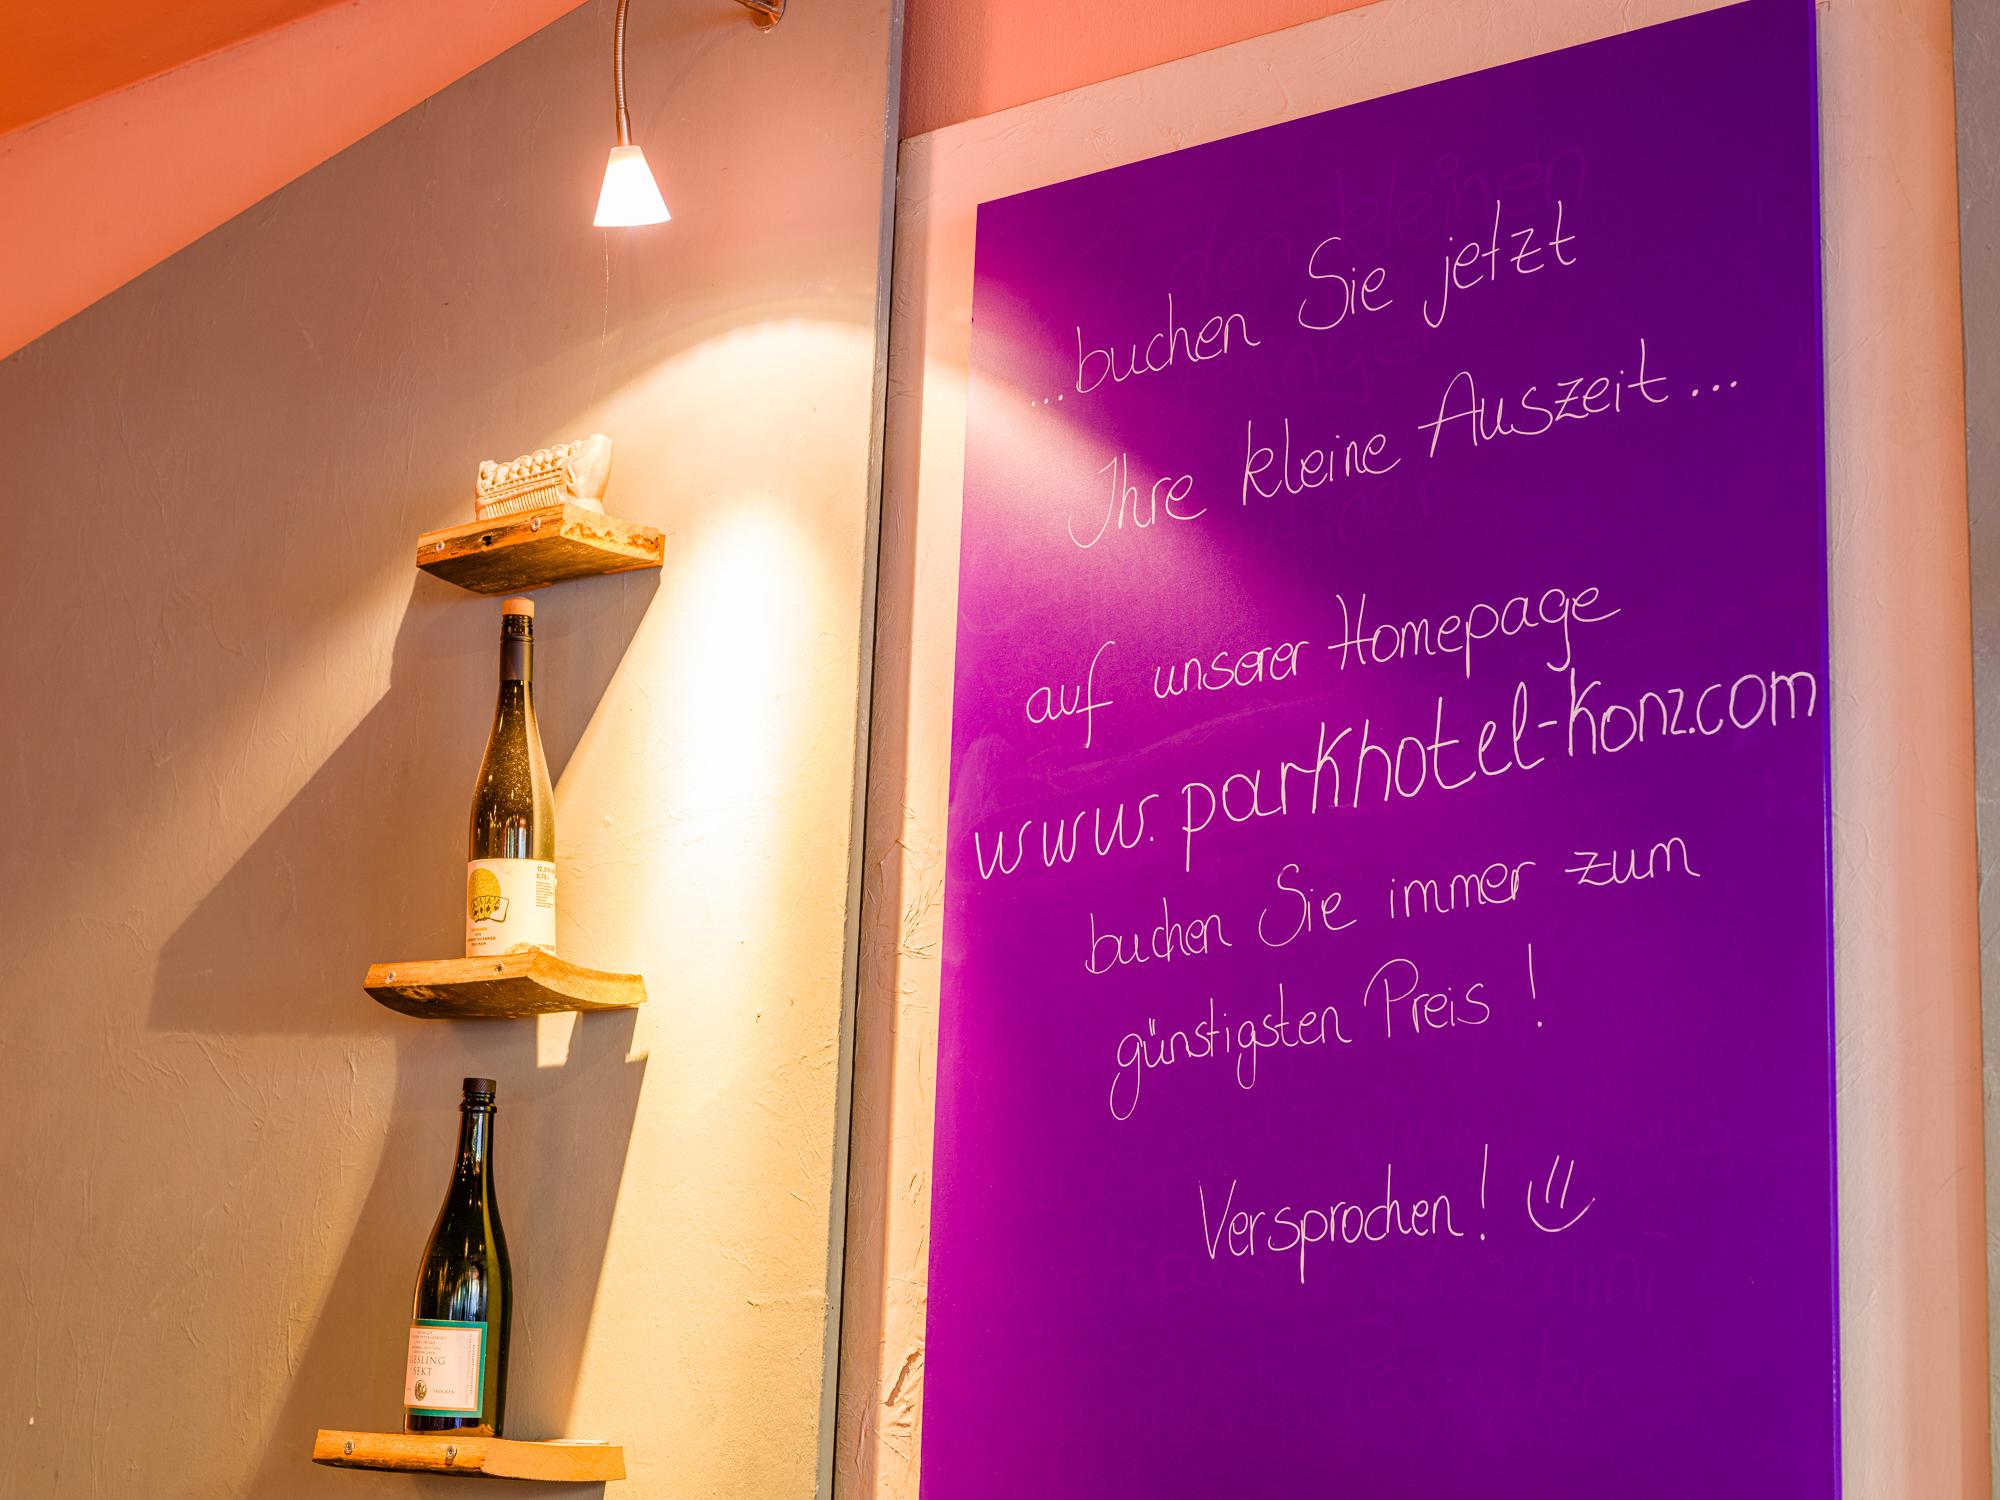 ...buchen Sie jetzt
Ihre kleine Auszeit...
auf unserer Homepage
www.parkhotel-konz.com
buchen Sie immer zum
günstigsten Preis!
Versprochen!
den kleinen
12,5%
0,75 l
TROCKEN
RIESLING
SEKT
TROCKEN